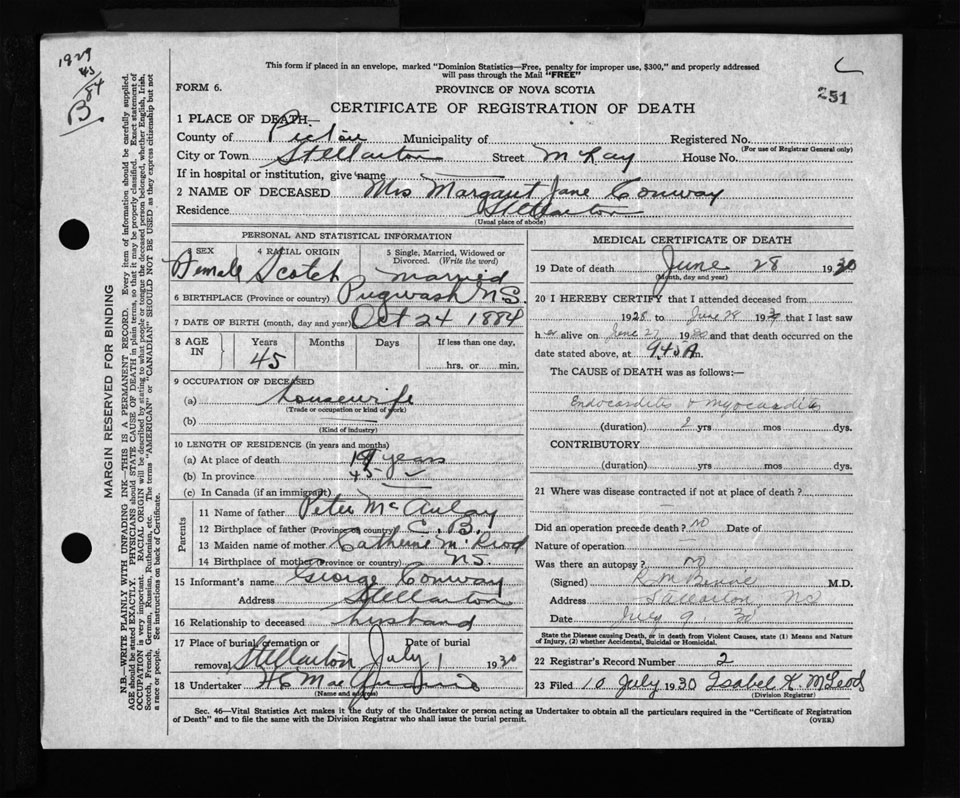 This form if placed in an envelope, marked "Dominion Statistics—Free, penalty for improper use, $300," and properly addressed
will pass through the Mail "FREE"
FORM 6.
PROVINCE OF NOVA SCOTIA
251
CERTIFICATE OF REGISTRATION OF DEATH
1929
45
84
B
1 PLACE OF DEATH—
County of Pictou Municipality of Registered No.
(For use of Registrar General only)
City or Town Stellarton Street McKay House No.
If in hospital or institution, give name
2 NAME OF DECEASED Mrs Margaret Jane Conway
Residence Stellarton
(Usual place of abode)
PERSONAL AND STATISTICAL INFORMATION
3 SEX 4 RACIAL ORIGIN 5 Single, Married, Widowed or
Divorced. (Write the word)
Female Scotch Married
6 BIRTHPLACE (Province or country) Pugwash N.S.
7 DATE OF BIRTH (month, day and year) Oct 24 1884
8 AGE IN Years Months Days If less than one day,
45 hrs. or min.
9 OCCUPATION OF DECEASED
(a) housewife
(Trade or occupation or kind of work)
(b)
(Kind of industry)
10 LENGTH OF RESIDENCE (in years and months)
(a) At place of death years
(b) In province 45
(c) In Canada (if an immigrant)
Parents
11 Name of father Peter McAulay
12 Birthplace of father (Province or country) C. B.
13 Maiden name of mother Catherine
14 Birthplace of mother (Province or country) NS.
15 Informant's name George Conway
Address Stellarton
16 Relationship to deceased husband
17 Place of burial, cremation or Date of burial
removal Stellarton July 1 1930
18 Undertaker
(Name and address)
MEDICAL CERTIFICATE OF DEATH
19 Date of death June 28 1930
(Month, day and year)
20 I HEREBY CERTIFY that I attended deceased from
1928 to June 28 1930 that I last saw
her alive on June 27 1930 and that death occurred on the
date stated above, at 9.45 A m.
The CAUSE of DEATH was as follows:—
Endocarditis & Myocarditis
(duration) 2 yrs mos dys.
CONTRIBUTORY
(duration) yrs mos dys.
21 Where was disease contracted if not at place of death?
Did an operation precede death? No Date of
Nature of operation
Was there an autopsy? No
(Signed) M.D.
Address Stellarton, NS
Date July 9, 30
State the Disease causing Death, or in death from Violent Causes, state (1) Means and Nature
of Injury, (2) whether Accidental, Suicidal or Homicidal.
22 Registrar's Record Number 2
23 Filed 10 July 1930 Isabel K McLeod
(Division Registrar)
Sec. 46—Vital Statistics Act makes it the duty of the Undertaker or person acting as Undertaker to obtain all the particulars required in the "Certificate of Registration
of Death" and to file the same with the Division Registrar who shall issue the burial permit.
(OVER)
MARGIN RESERVED FOR BINDING
N.B.—WRITE PLAINLY WITH UNFADING INK—THIS IS A PERMANENT RECORD. Every item of information should be carefully supplied.
AGE should be stated EXACTLY. PHYSICIANS should STATE CAUSE OF DEATH in plain terms, so that it may be properly classified. Exact statement of
OCCUPATION is very important. RACIAL ORIGIN will be described by stating to what people or tongue the deceased person belonged, whether English, Irish,
Scotch, French, German, Russian, Ruthenian, etc. The terms "AMERICAN" or "CANADIAN" SHOULD NOT BE USED as they express citizenship but not
a race or people. See instructions on back of Certificate.